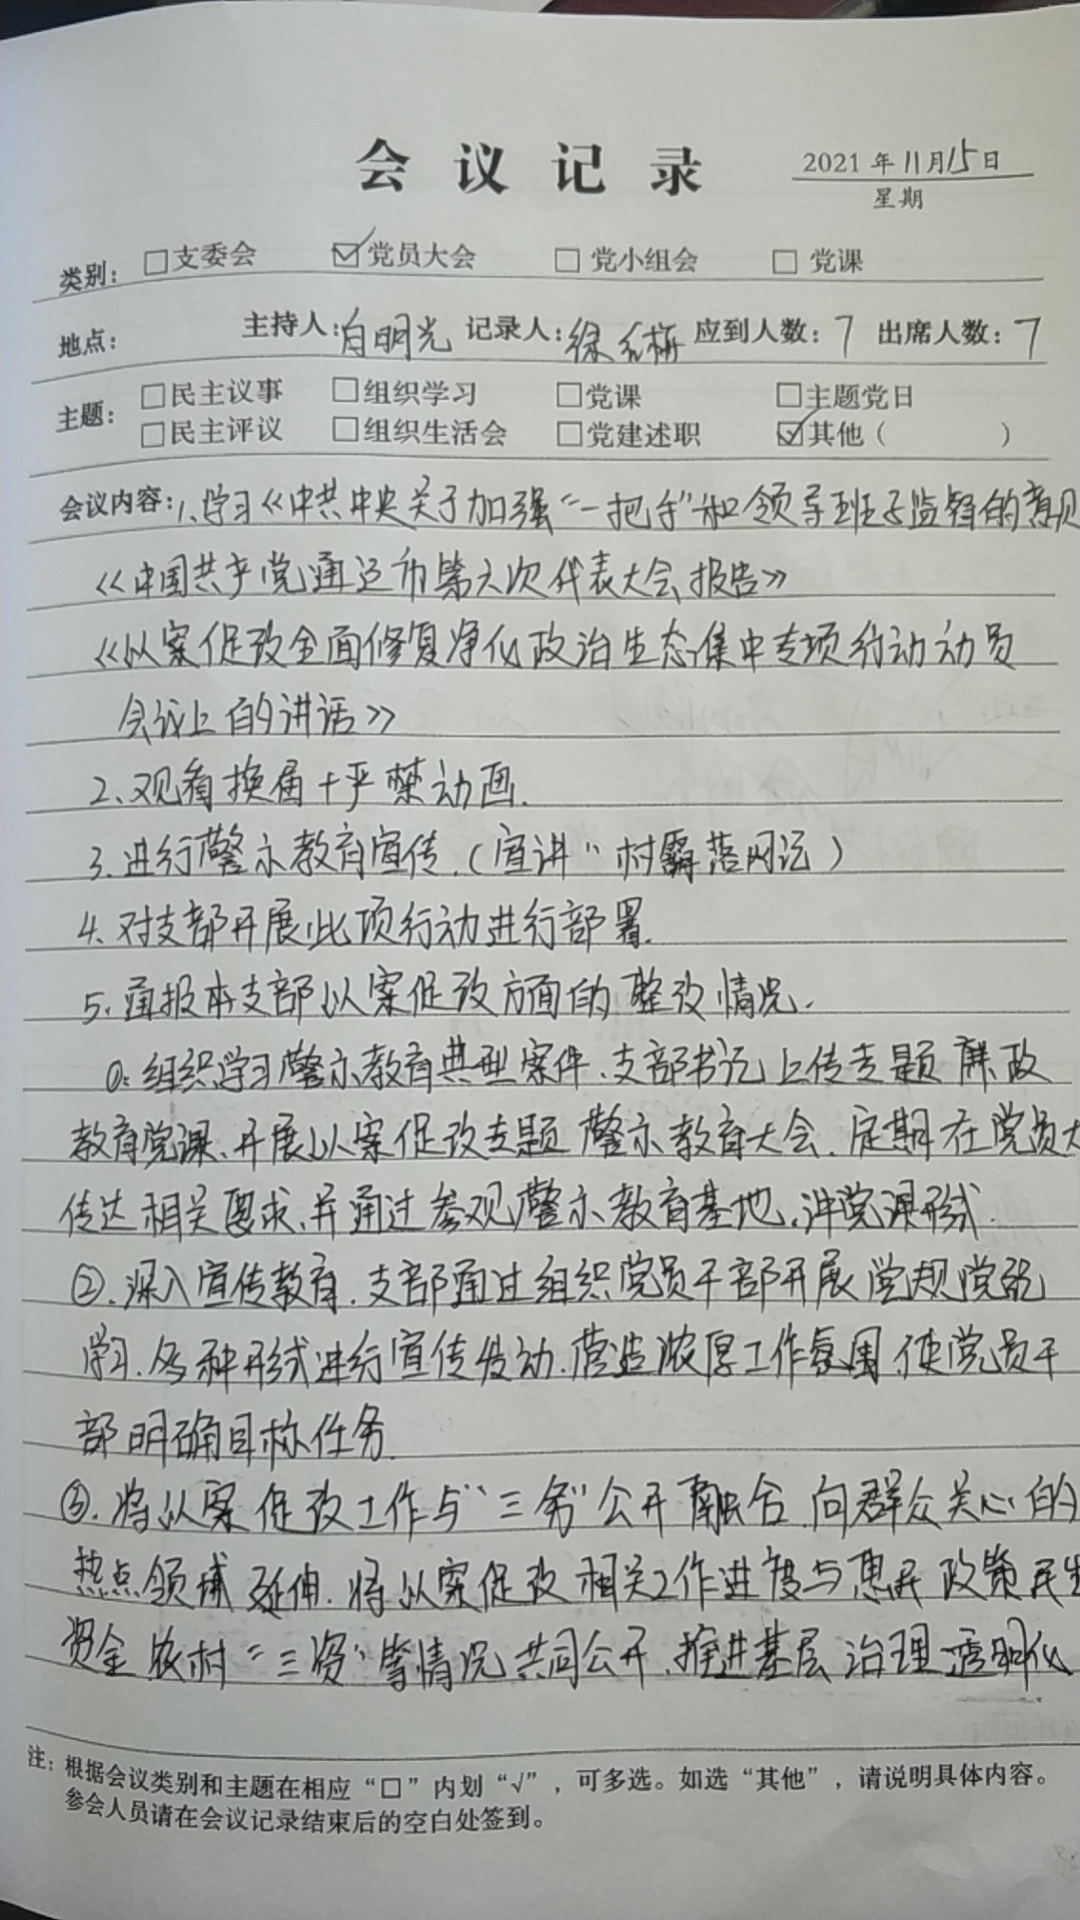 会议记录
2021年11月15日
星期
类别：□支委会 ☑党员大会 □党小组会 □党课
地点： 主持人：白明光 记录人：徐 梅 应到人数：7 出席人数：7
主题：□民主议事 □组织学习 □党课 □主题党日
□民主评议 □组织生活会 □党建述职 ☑其他（ ）
会议内容：1、学习《中共中央关于加强“一把手”和领导班子监督的意见
《中国共产党通辽市第六次代表大会报告》
《以案促改全面修复净化政治生态集中专项行动动员
会议上的讲话》
2、观看换届十严禁动画.
3.进行警示教育宣传.（宣讲“村霸落网记）
4、对支部开展此项行动进行部署.
5、通报本支部以案促改方面的整改情况.
①：组织学习警示教育典型案件、支部书记上传专题廉政
教育党课、开展以案促改专题警示教育大会.定期在党员大
传达相关要求、并通过参观警示教育基地、讲党课形式.
②、深入宣传教育.支部通过组织党员干部开展党规党纪
学习.多种形式进行宣传发动.营造浓厚工作氛围.使党员干
部明确目标任务.
③.将以案促改工作与“三务”公开融合.向群众关心的
热点领域延伸.将以案促改相关工作进度与惠民政策民生
资金农村“三资”等情况共同公开.推进基层治理透明化
注：根据会议类别和主题在相应“□”内划“√”，可多选。如选“其他”，请说明具体内容。
参会人员请在会议记录结束后的空白处签到。